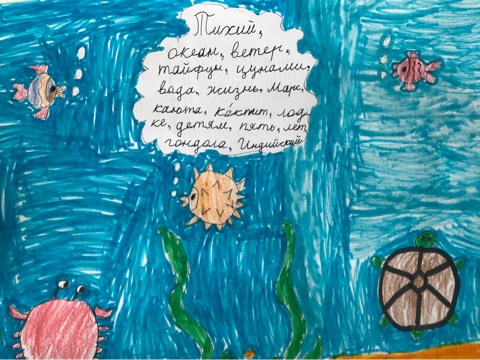 Тихий,
океан, ветер,
тайфун, цунами,
вода, жизнь, Марк,
каюта, кокпит, лод-
ке, детям, пять, лет
гондола, Индийский